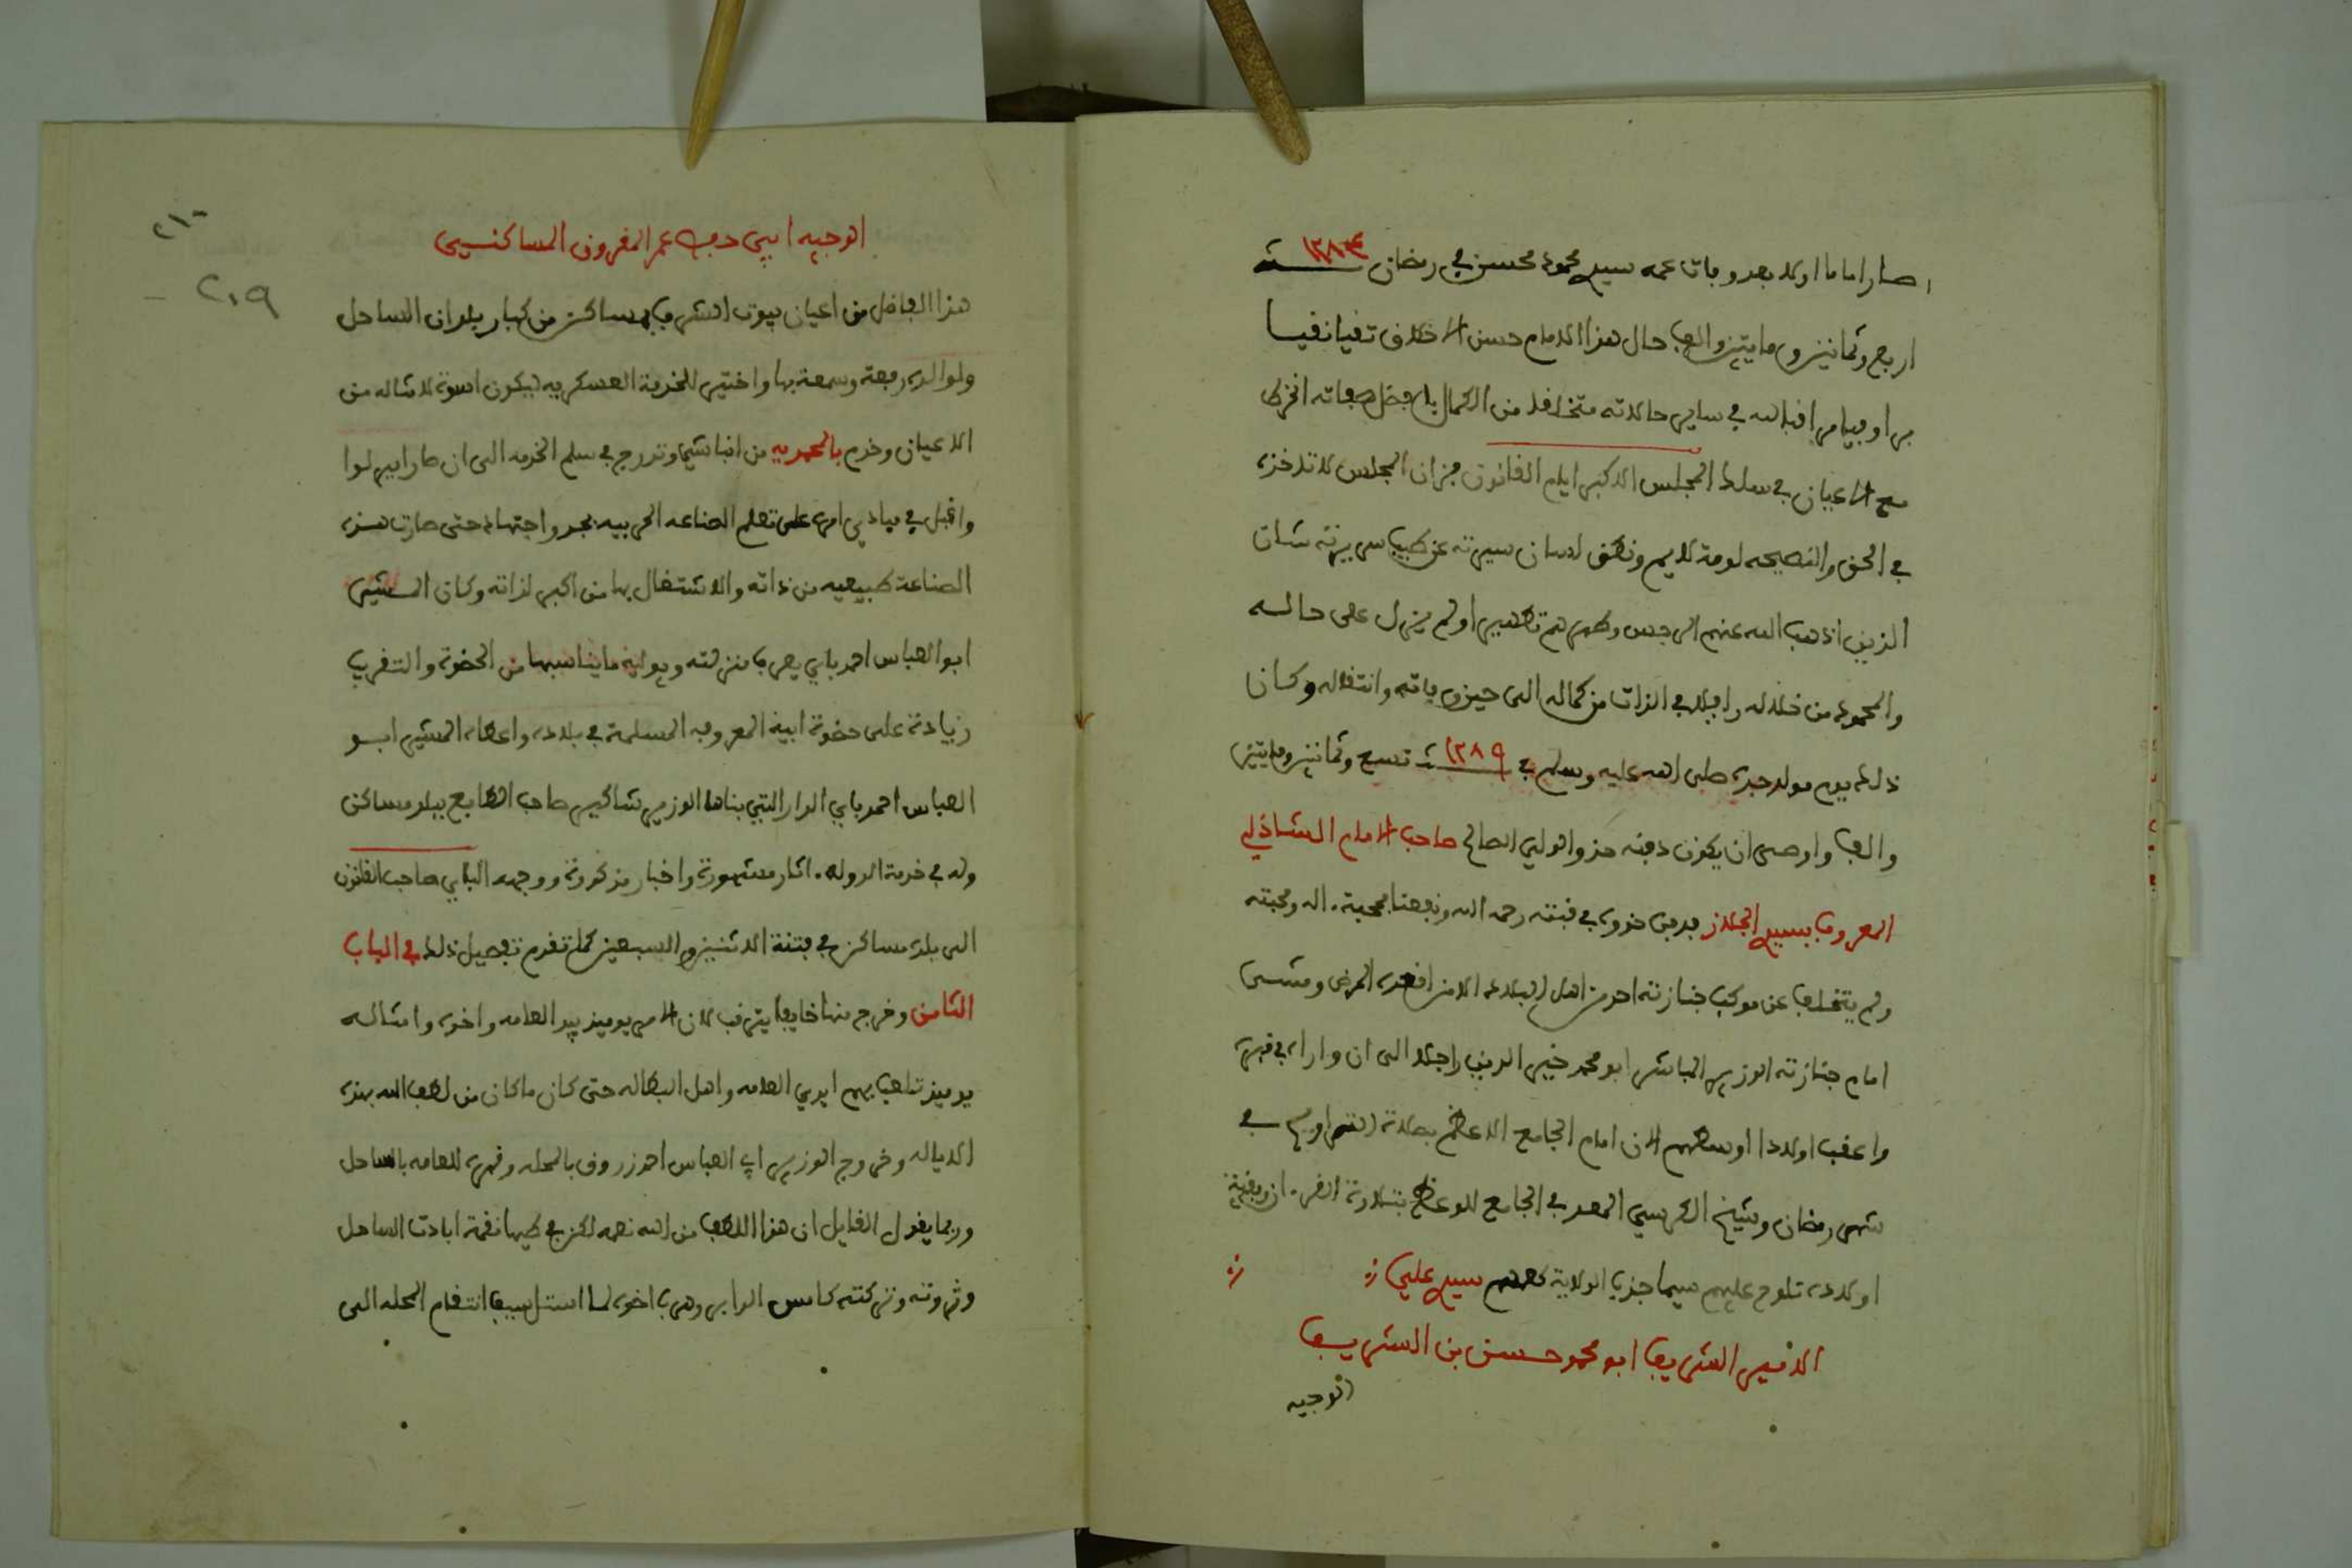 صار اماما اولا بعد وفات عمه سيدي محمود محسن في رمضان سنة ١٢٨٤
اربع وثمانين ومايتين والف حال هذا الامام حسن الاخلاق تقيا نقيا
برا وفيا مراقبا لله في ساير حالاته متخلقا من الكمال بافضل صفاته انخرط
مع الاعيان في سلك المجلس الاكبر ايام القانون فزان المجلس لا تاخذه
في الحق والنصيحه لومة لايم ونطق لسان سيرته عن طيب سريرته شان
الذين اذهب الله عنهم الرجس وطهرهم تطهيرا ولم يزل على حاله
والمحمود من خلاله رافلا في الذات من كماله الى حين وفاته وانتقاله وكان
ذلك يوم مولد جده صلى الله عليه وسلم في سنة ١٢٨٩ تسع وثمانين ومايتين
والف واوصى ان يكون دفنه حذو الولي الصالح صاحب الامام الشاذلي
المعروف بسيدي الجلاز فدفن حذوه في قبته رحمه الله ونفعنا بمحبة اله ومحبته
ولم يتخلف عن موكب جنازته احد من اهل البلاد الا من اقعده المرض ومشى
امام جنازته الوزير المباشر ابو محمد خير الدين راجلا الى ان واراه في قبره
واعقب اولادا اوسطهم الان امام الجامع الاعظم بصلاة التراويح في
شهر رمضان وشيخ الكرسي المعد في الجامع للوعظ بتلاوة القرءان وبقية
اولاده تلوح عليهم سيما جذب الولاية كعمهم سيدي علي
الامير الشريف ابو محمد حسن بن الشريف
الوجيه
٢١٠
٢٠٩
الوجيه ابي حفص عمر المقرون المساكنسي
هذا الفاضل من اعيان بيوت الشرف بمساكن من كبار بلدان الساحل
ولوالده رفعة وسمعة بها واختير للخدمة العسكريه ليكون اسوة لامثاله من
الاعيان وخدم بالمحمديه من انباشيا وتدرج في سلم الخدمه الى ان صار امير لوا
واقبل في مبادي امره على تعلم الصناعه الحربيه بجد واجتهاد حتى صارت هذه
الصناعة طبيعيه من ذاته والاشتغال بها من اكبر لذاته وكان المشير
ابو العباس احمد باي يعرف منزلته ويوليه ما يناسبها من الحضوة والتقريب
زيادة على حضوة ابيه المعروفه المسلمة في بلاده واعطاه المشير ابو
العباس احمد باي الدار التي بناها الوزير شاكير صاحب الطابع ببلد مساكن
وله في خدمة الدوله اثار مشهورة واخبار مذكورة ووجهه الباي صاحب القانون
الى بلده مساكن في فتنة الاثنين والسبعين كما تقدم تفصيل ذلك في الباب
الثامن وخرج منها خايفا يترقب لان الامر يوميذ بيد العامه واخوه وامثاله
يوميذ تلعب بهم ايدي العامه واهل البطاله حتى كان ما كان من لطف الله بهذه
الاياله وخروج الوزير ابي العباس احمد زروق بالمحله وقهره للعامه بالساحل
وربما يقول القايل ان هذا اللطف من الله نعمه لكن في طيها نقمة ابادت الساحل
وثروته وتركته كامس الدابر وهرب اخوه لما استل سيف انتقام المحله الى